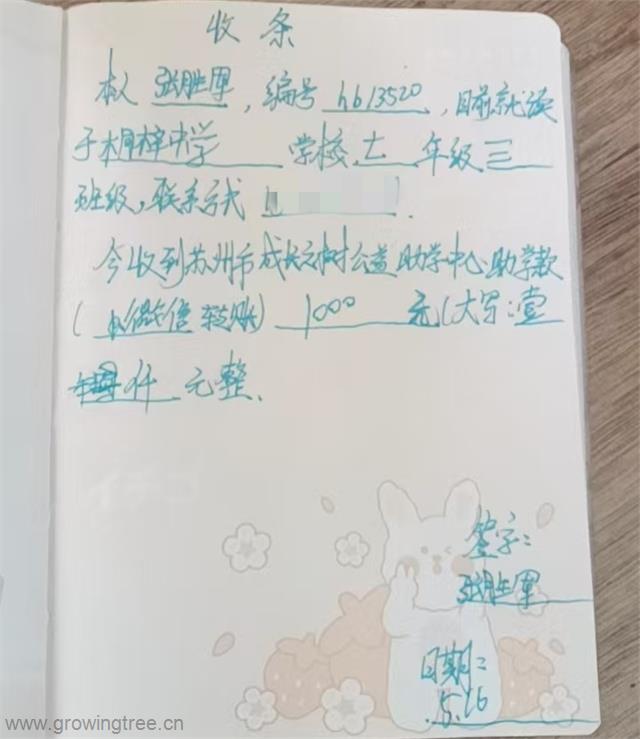 收条
本人 张胜军，编号 hb13520，目前就读
于桐梓中学 学校 七 年级 三
班级，联系方式
今收到苏州市成长之树公益助学中心助学款
（以微信转账） 1000 元（大写：壹
仟 元整、
签字：
张胜军
日期：
5.26
www.growingtree.cn